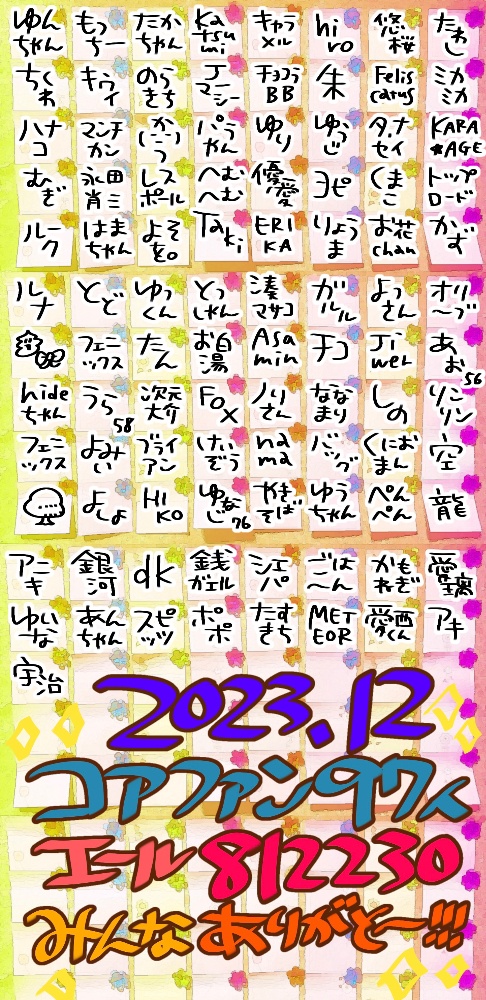 ゆんちゃん もっちー たかちゃん Katsumi キャラメル hiro 悠桜 たわし
ちくわ キウィ のらきち Jーマシー チョコラBB 朱 Felis Catus ミカミカ
ハナコ マンチカン パうやん ゆり ゆうじ タ.ナセイ KARA★AGE
むぎ 永田肖ミ レスポール へむへむ 優愛 ヨピ くまこ トップロード
ルーク はまちゃん よそを。 Taki ERIKA りょうま お花chan かず
ルナ とど ゆっくん とっしゃん 湊マサコ ガルル よっさん オリーブ
フェニックス たん お白湯 Asamin チコ Jiwel あお56
hideちゃん うら58 次元大介 FOX ノリさん ななまり しの リンリン
フェニックス よみぃ ブライアン けいぞう nama バッグ くにおまん 空
よしょ HIKO ゆなじ76 やきそば ゆうちゃん ぺんぺん 龍
アニキ 銀河 dk 銭ガエル シェパ ごはーん かもねぎ 愛璃
ゆいーな あんちゃん スピッツ ポポ たすきち METEOR 愛西くん アキ
宇治
2023.12
コアファン97人
エール 812230
みんなありがとー!!!